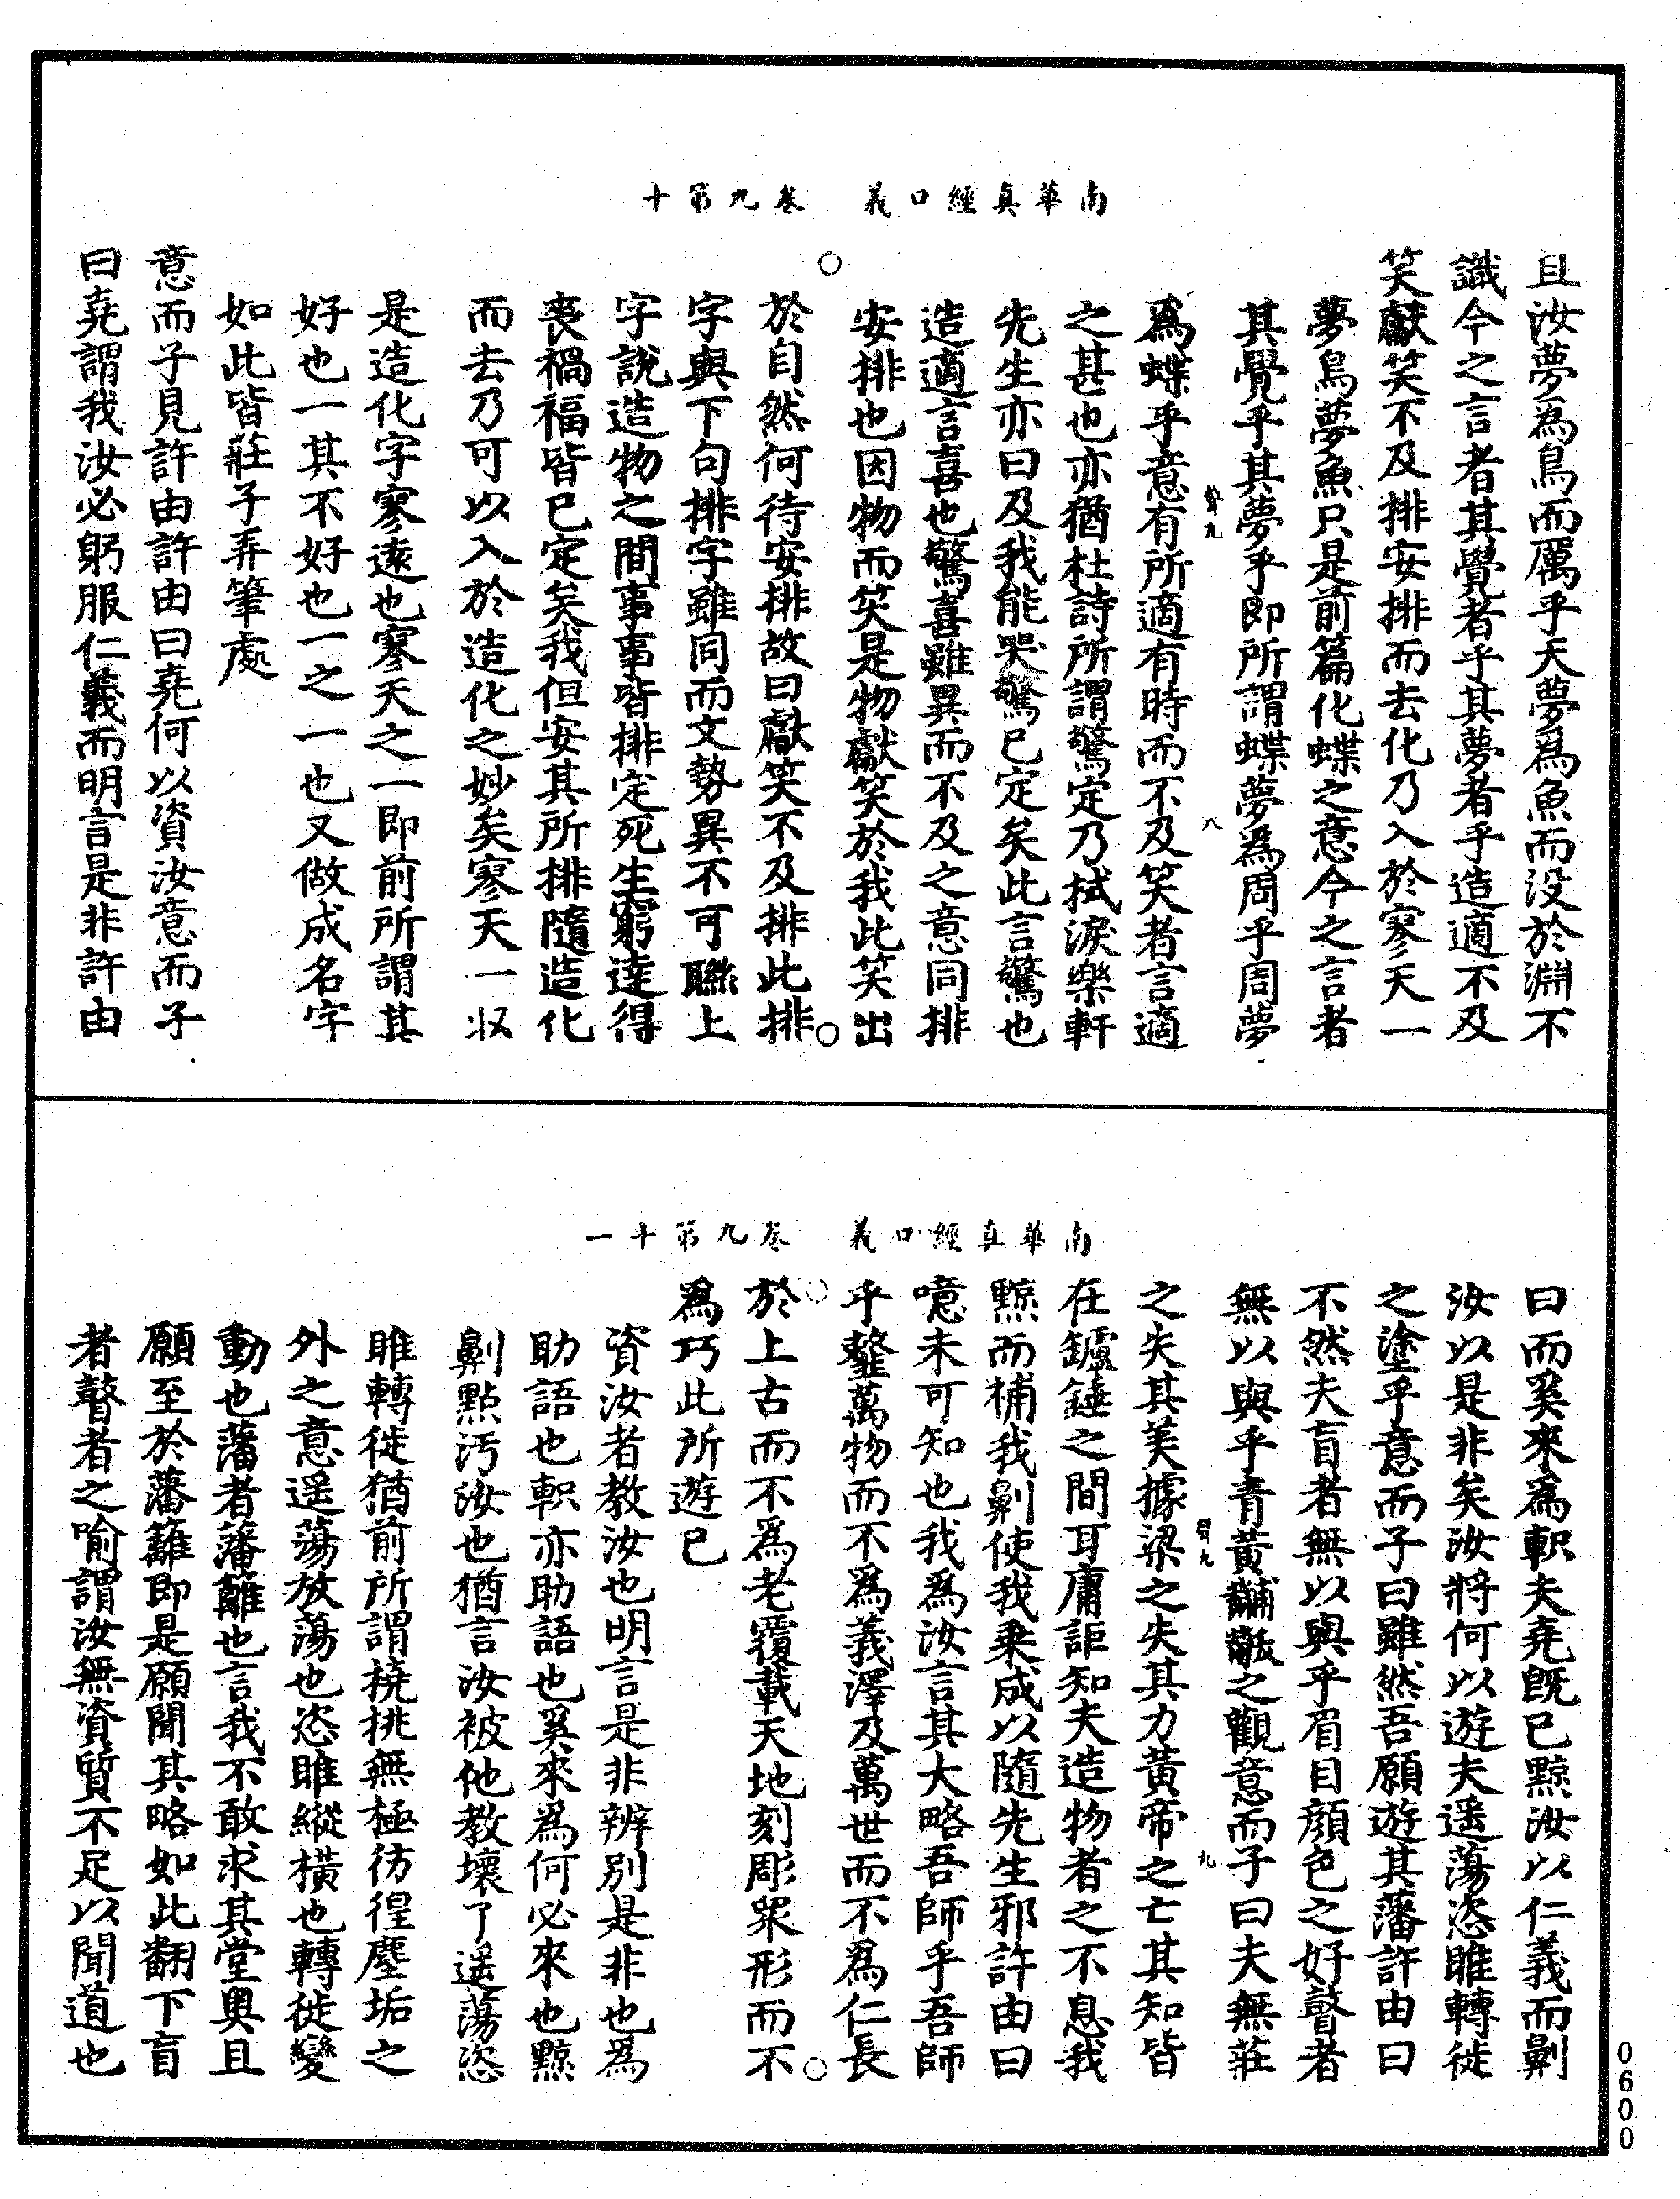 南華真經口義　卷九第十
且汝夢為鳥而厲乎天夢為魚而没於淵不
識今之言者其覺者乎其夢者乎造適不及
笑獻笑不及排安排而去化乃入於寥天一
夢鳥夢魚只是前篇化蝶之意今之言者
其覺乎其夢乎即所謂蝶夢爲周乎周夢
九
八
爲蝶乎意有所適有時而不及笑者言適
之甚也亦猶杜詩所謂驚定乃拭淚樂軒
先生亦曰及我能哭驚已定矣此言驚也
造適言喜也驚喜雖異而不及之意同排
安排也因物而笑是物獻笑於我此笑出
於自然何待安排故曰獻笑不及排此排
字與下句排字雖同而文勢異不可聯上
字說造物之間事事皆排定死生窮達得
喪禍福皆已定矣我但安其所排隨造化
而去乃可以入於造化之妙矣寥天一収
是造化字寥遠也寥天之一即前所謂其
好也一其不好也一之一也又做成名字
如此皆莊子弄筆處
意而子見許由許由曰堯何以資汝意而子
曰堯謂我汝必躬服仁義而明言是非許由
南華真經口義　卷九第十一
曰而奚來爲軹夫堯旣已黥汝以仁義而劓
汝以是非矣汝將何以遊夫遥蕩恣睢轉徙
之塗乎意而子曰雖然吾願遊其藩許由曰
不然夫盲者無以與乎眉目顔色之好瞽者
無以與乎青黃黼黻之觀意而子曰夫無莊
九
九
之失其美據梁之失其力黃帝之亡其知皆
在鑪錘之間耳庸詎知夫造物者之不息我
黥而補我劓使我乗成以隨先生邪許由曰
噫未可知也我爲汝言其大略吾師乎吾師
乎䪠萬物而不爲義澤及萬世而不爲仁長
於上古而不爲老覆載天地刻彫衆形而不
爲巧此所遊已
資汝者教汝也明言是非辨别是非也爲
助語也軹亦助語也奚來爲何必來也黥
劓點汚汝也猶言汝被他教壞了遥蕩恣
睢轉徙猶前所謂撓挑無極彷徨塵垢之
外之意遥蕩放蕩也恣睢縱橫也轉徙變
動也藩者藩籬也言我不敢求其堂奥且
願至於藩籬即是願聞其略如此翻下盲
者瞽者之喻謂汝無資質不足以聞道也
0600